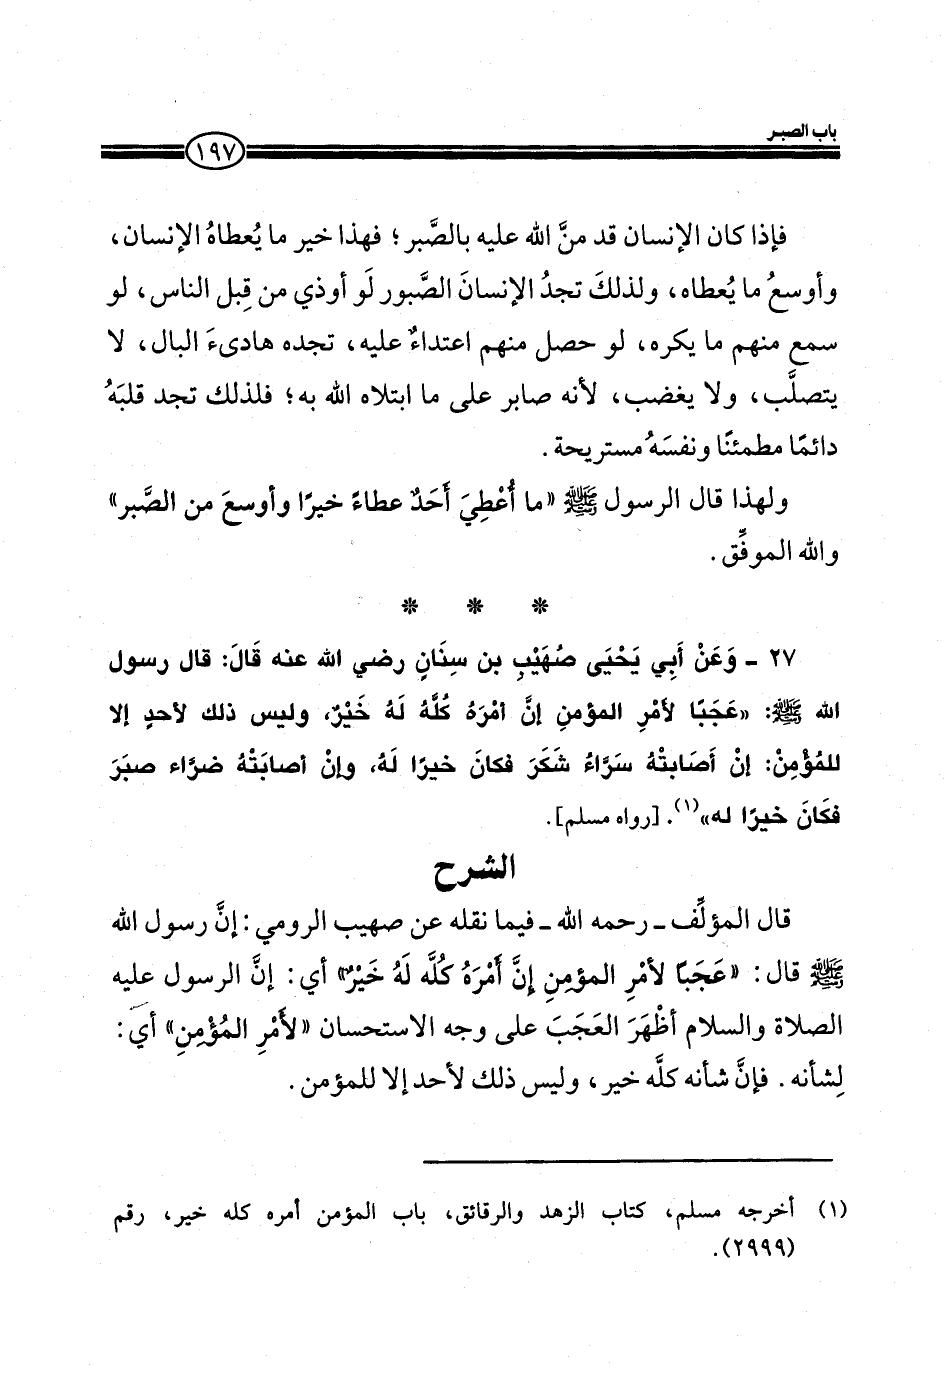 باب الصبر
١٩٧
فإذا كان الإنسان قد منَّ الله عليه بالصَّبر؛ فهذا خير ما يُعطاهُ الإنسان،
وأوسعُ ما يُعطاه، ولذلكَ تجدُ الإنسانَ الصَّبور لَو أوذي من قِبل الناس، لو
سمع منهم ما يكره، لو حصل منهم اعتداءٌ عليه، تجده هادىءَ البال، لا
يتصلَّب، ولا يغضب، لأنه صابر على ما ابتلاه الله به؛ فلذلك تجد قلبَهُ
دائمًا مطمئنًا ونفسَهُ مستريحة.
ولهذا قال الرسول ﷺ «ما أُعْطِيَ أَحَدٌ عطاءً خيرًا وأوسعَ من الصَّبر»
والله الموفِّق.
* * *
٢٧ - وَعَنْ أَبِي يَحْيَى صُهَيْبِ بن سِنَانٍ رضي الله عنه قَالَ: قال رسول
الله ﷺ: «عَجَبًا لأمْرِ المؤمنِ إنَّ أمْرَهُ كُلَّهُ لَهُ خَيْرٌ، وليس ذلك لأحدٍ إلا
للمُؤْمِنْ: إنْ أَصَابتْهُ سَرَّاءُ شَكَرَ فكانَ خيرًا لَهُ، وإنْ أصابَتْهُ ضرَّاء صبَرَ
فكَانَ خيرًا له»(١). [رواه مسلم].
الشرح
قال المؤلِّف ـ رحمه الله ـ فيما نقله عن صهيب الرومي: إنَّ رسول الله
ﷺ قال: «عَجَبًا لأمْرِ المؤمنِ إنَّ أَمْرَهُ كُلَّه لَهُ خَيْرٌ» أي: إنَّ الرسول عليه
الصلاة والسلام أظْهَرَ العَجَبَ على وجه الاستحسان «لأَمْرِ المُؤْمِنِ» أي:
لِشأنه. فإنَّ شأنه كلَّه خير، وليس ذلك لأحد إلا للمؤمن.
(١) أخرجه مسلم، كتاب الزهد والرقائق، باب المؤمن أمره كله خير، رقم
(٢٩٩٩).